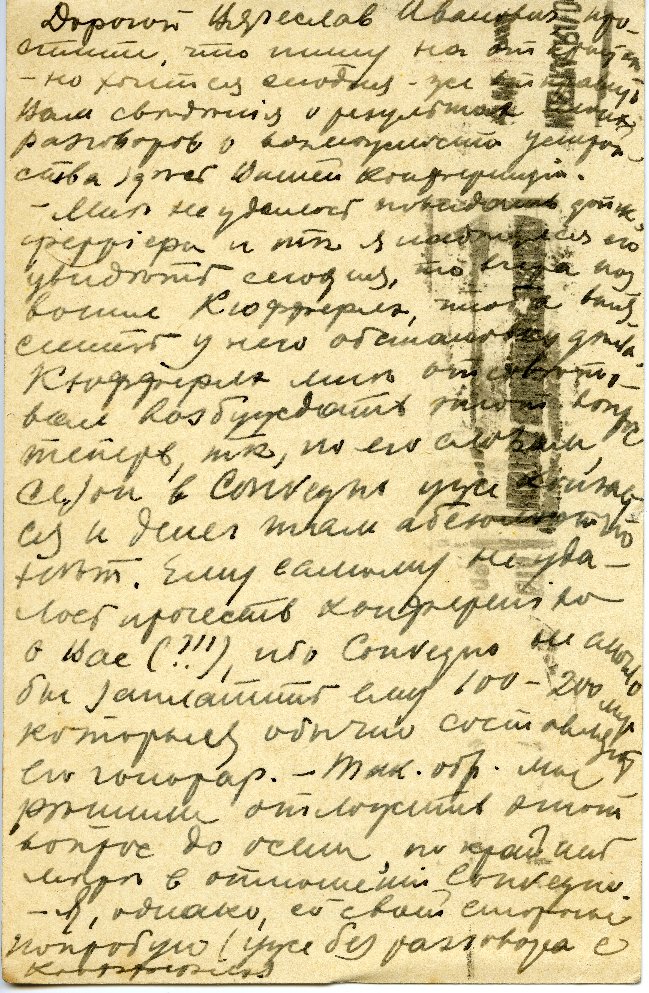 Дорогой Вячеслав Иванович, про-
стите, что пишу на открытке
– но хочется сегодня-же
Вам сведения о результатах моих
разговоров о возможности устрой-
ства здесь Вашей конференціи.
– Мне не удалось повидать
Феррьери и тк я надеялся его
увидеть сегодня, то вчера поз
вонил Кюфферле, чтобы выя
снить у него обстановку дела.
Кюфферле мне отсовето-
вал возбуждать этот вопрос
теперь, тк, по его словам,
сезон в Convegno уже кончает
ся и денег там абсолютно
нѣт. Ему самому не уда-
лось прочесть конференцію
о Вас (?!!), ибо Convegno не могло
бы заплатить ему 100 – 200 лир
которыя обычно составляют
его гонорар. – Так. обр. мы
рѣшили отложить этот
вопрос до осени, по крайней
мѣрѣ в отношеніи Convegno
– Я, однако, со своей стороны
попробую (уже без разговора с